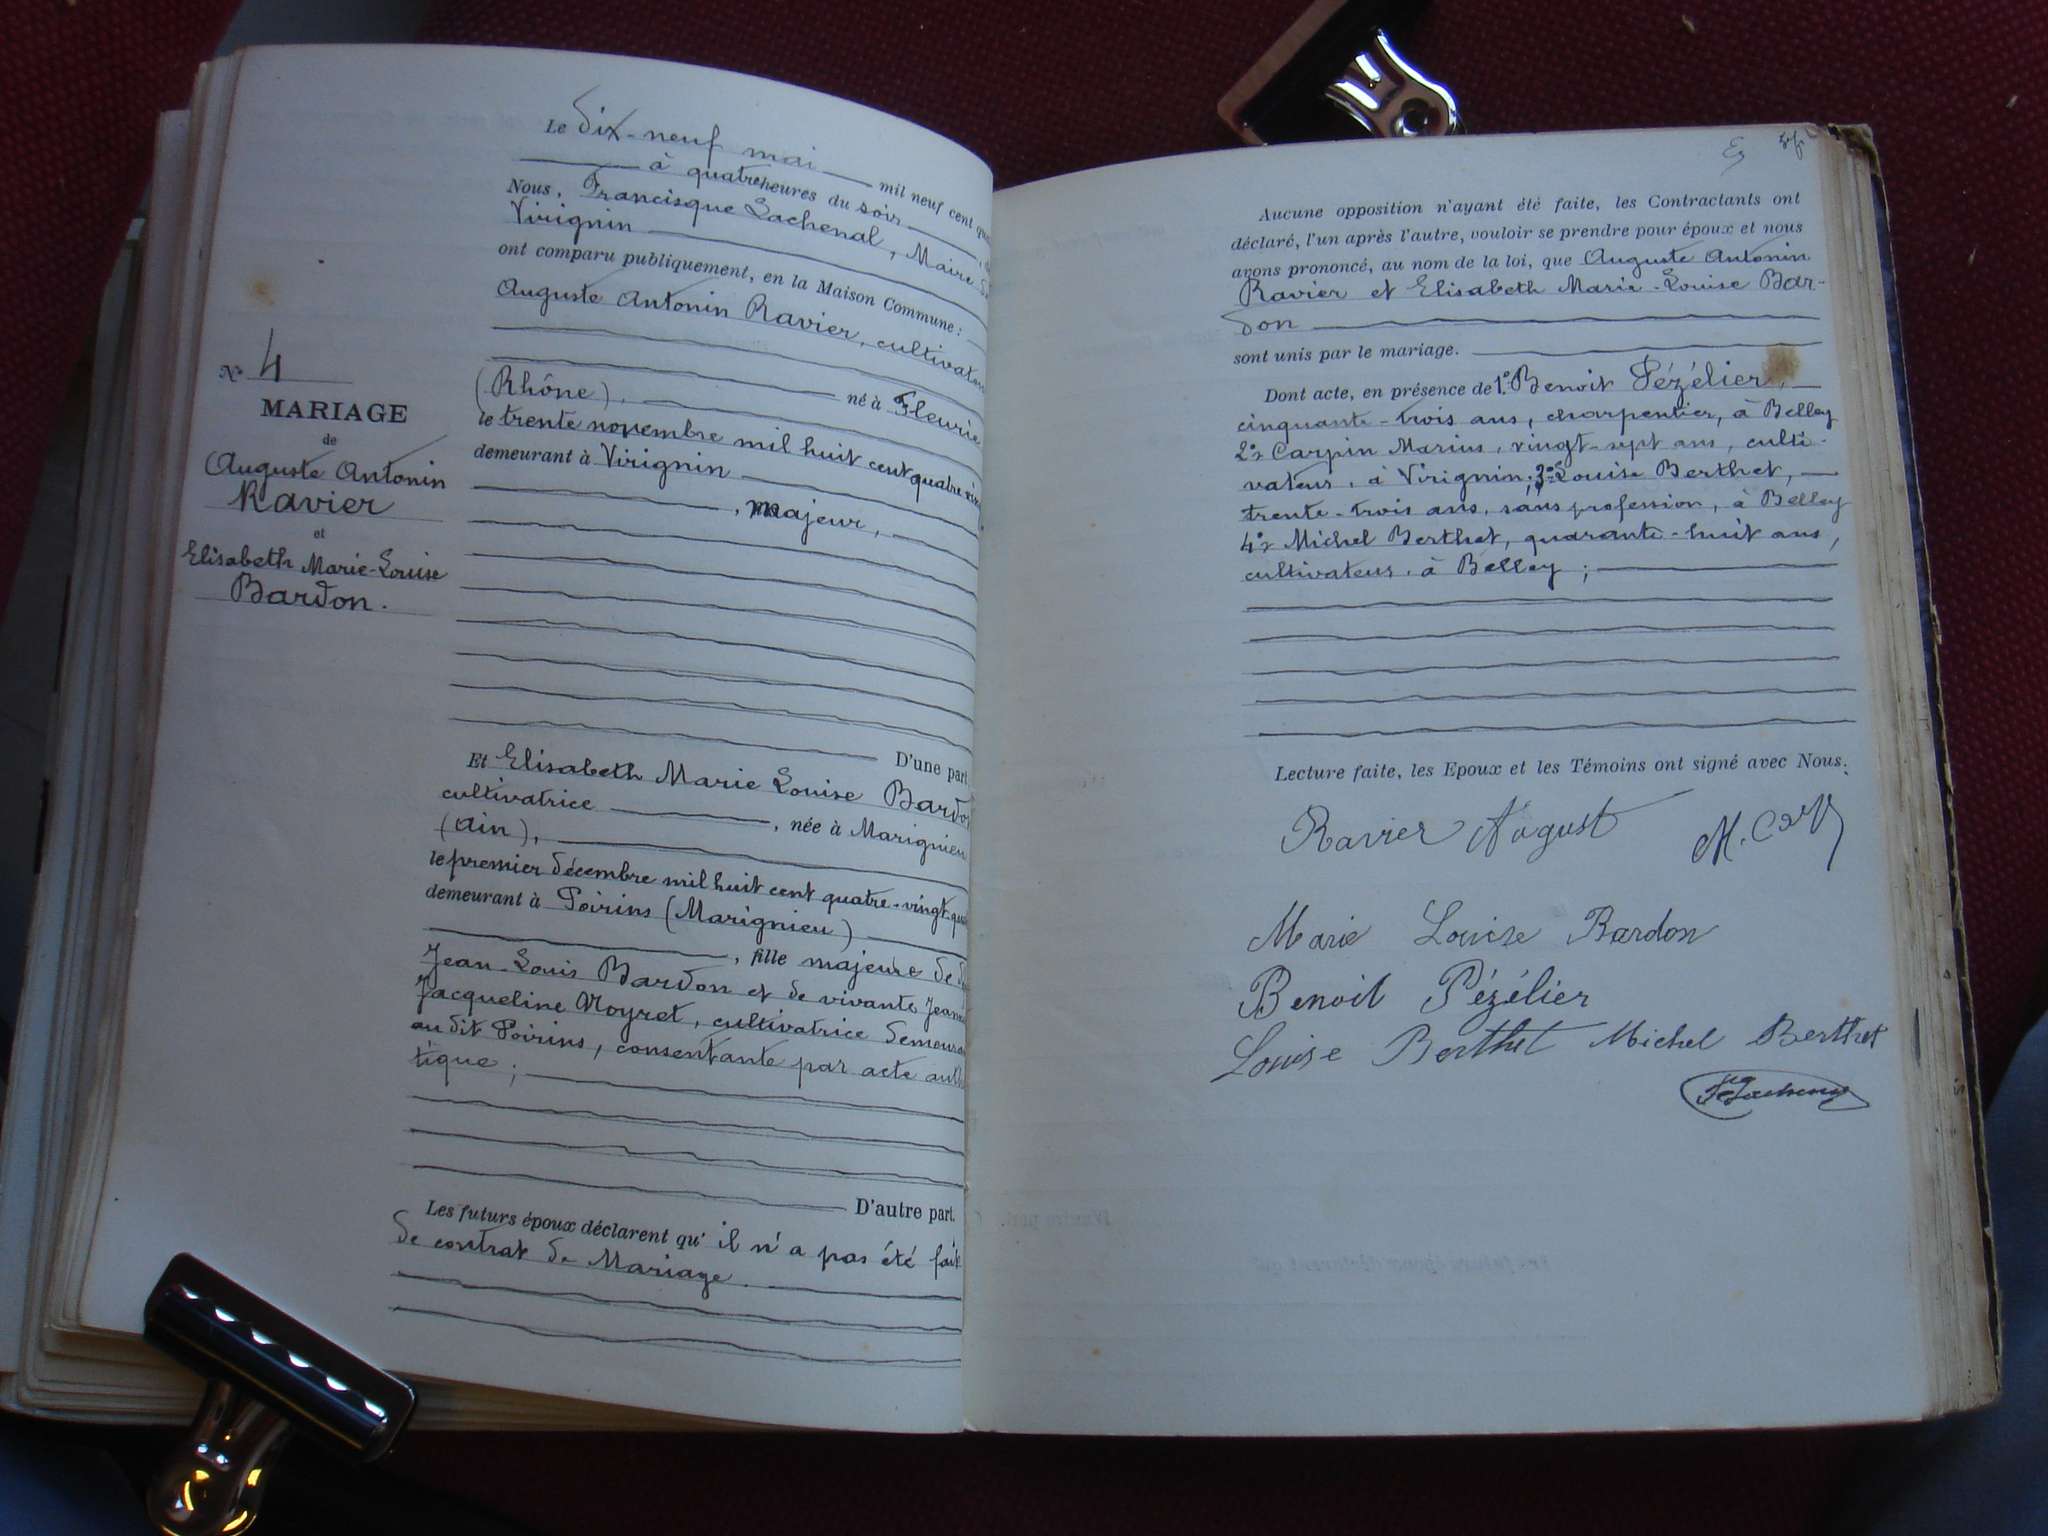 Le dix-neuf mai mil neuf cent
à quatre heures du soir
Nous, Francisque Lachenal, Maire de
Virignin
ont comparu publiquement, en la Maison Commune :
Auguste Antonin Ravier, cultivateur
né à Fleurie
(Rhône),
le trente novembre mil huit cent quatre
demeurant à Virignin
, majeur,
D'une part
Nº 4
MARIAGE
de
Auguste Antonin
Ravier
et
Elisabeth Marie-Louise
Bardon.
Et Elisabeth Marie Louise Bardon
cultivatrice , née à Marignieu
(Ain),
le premier décembre mil huit cent quatre-vingt
demeurant à Poirins (Marignieu)
, fille majeure de
Jean-Louis Bardon et de vivante
Jacqueline Moyret, cultivatrice
au dit Poirins, consentante par acte
tique ;
D'autre part.
Les futurs époux déclarent qu' il n'a pas été fait
de contrat de Mariage.
Aucune opposition n'ayant été faite, les Contractants ont
déclaré, l'un après l'autre, vouloir se prendre pour époux et nous
avons prononcé, au nom de la loi, que Auguste Antonin
Ravier et Elisabeth Marie-Louise Bar-
don
sont unis par le mariage.
Dont acte, en présence de 1º Benoit Pézélier,
cinquante-trois ans, charpentier, à Belley
2º Carpin Marius, vingt-sept ans, culti-
vateur, à Virignin, 3º Louise Berthet,
trente-trois ans, sans profession, à Belley
4º Michel Berthet, quarante-huit ans,
cultivateur, à Belley ;
Lecture faite, les Epoux et les Témoins ont signé avec Nous.
Ravier August
Marie Louise Bardon
Benoit Pézélier
Louise Berthet Michel Berthet